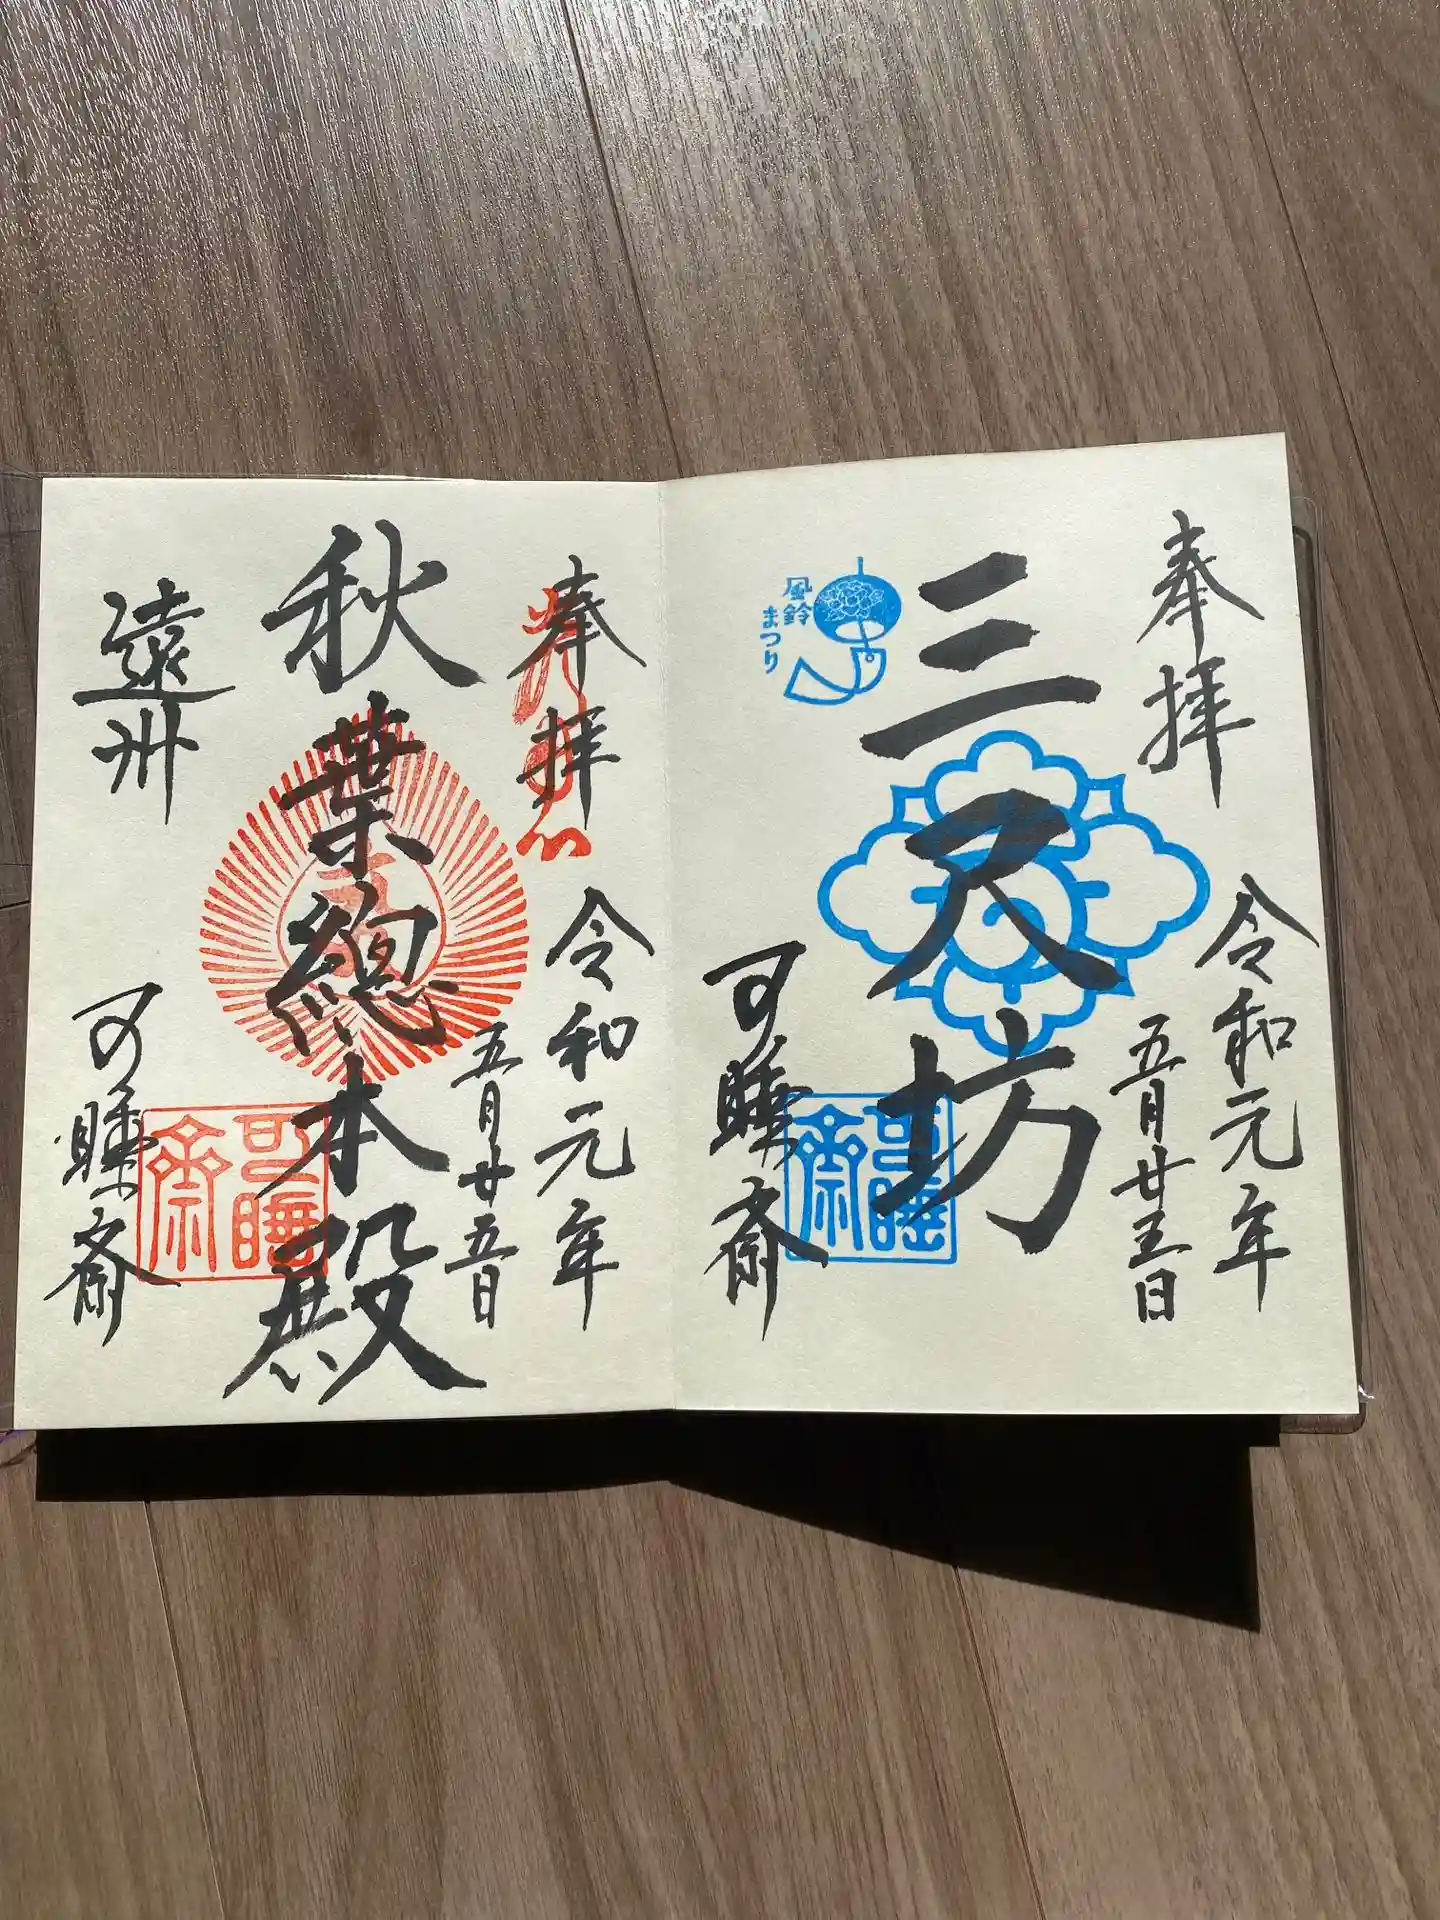 奉拝
令和元年
五月廿五日
三尺坊
風鈴
まつり
可睡斎
可睡
斎
奉拝
令和元年
五月廿五日
秋葉總本殿
遠州
可睡斎
可睡
斎